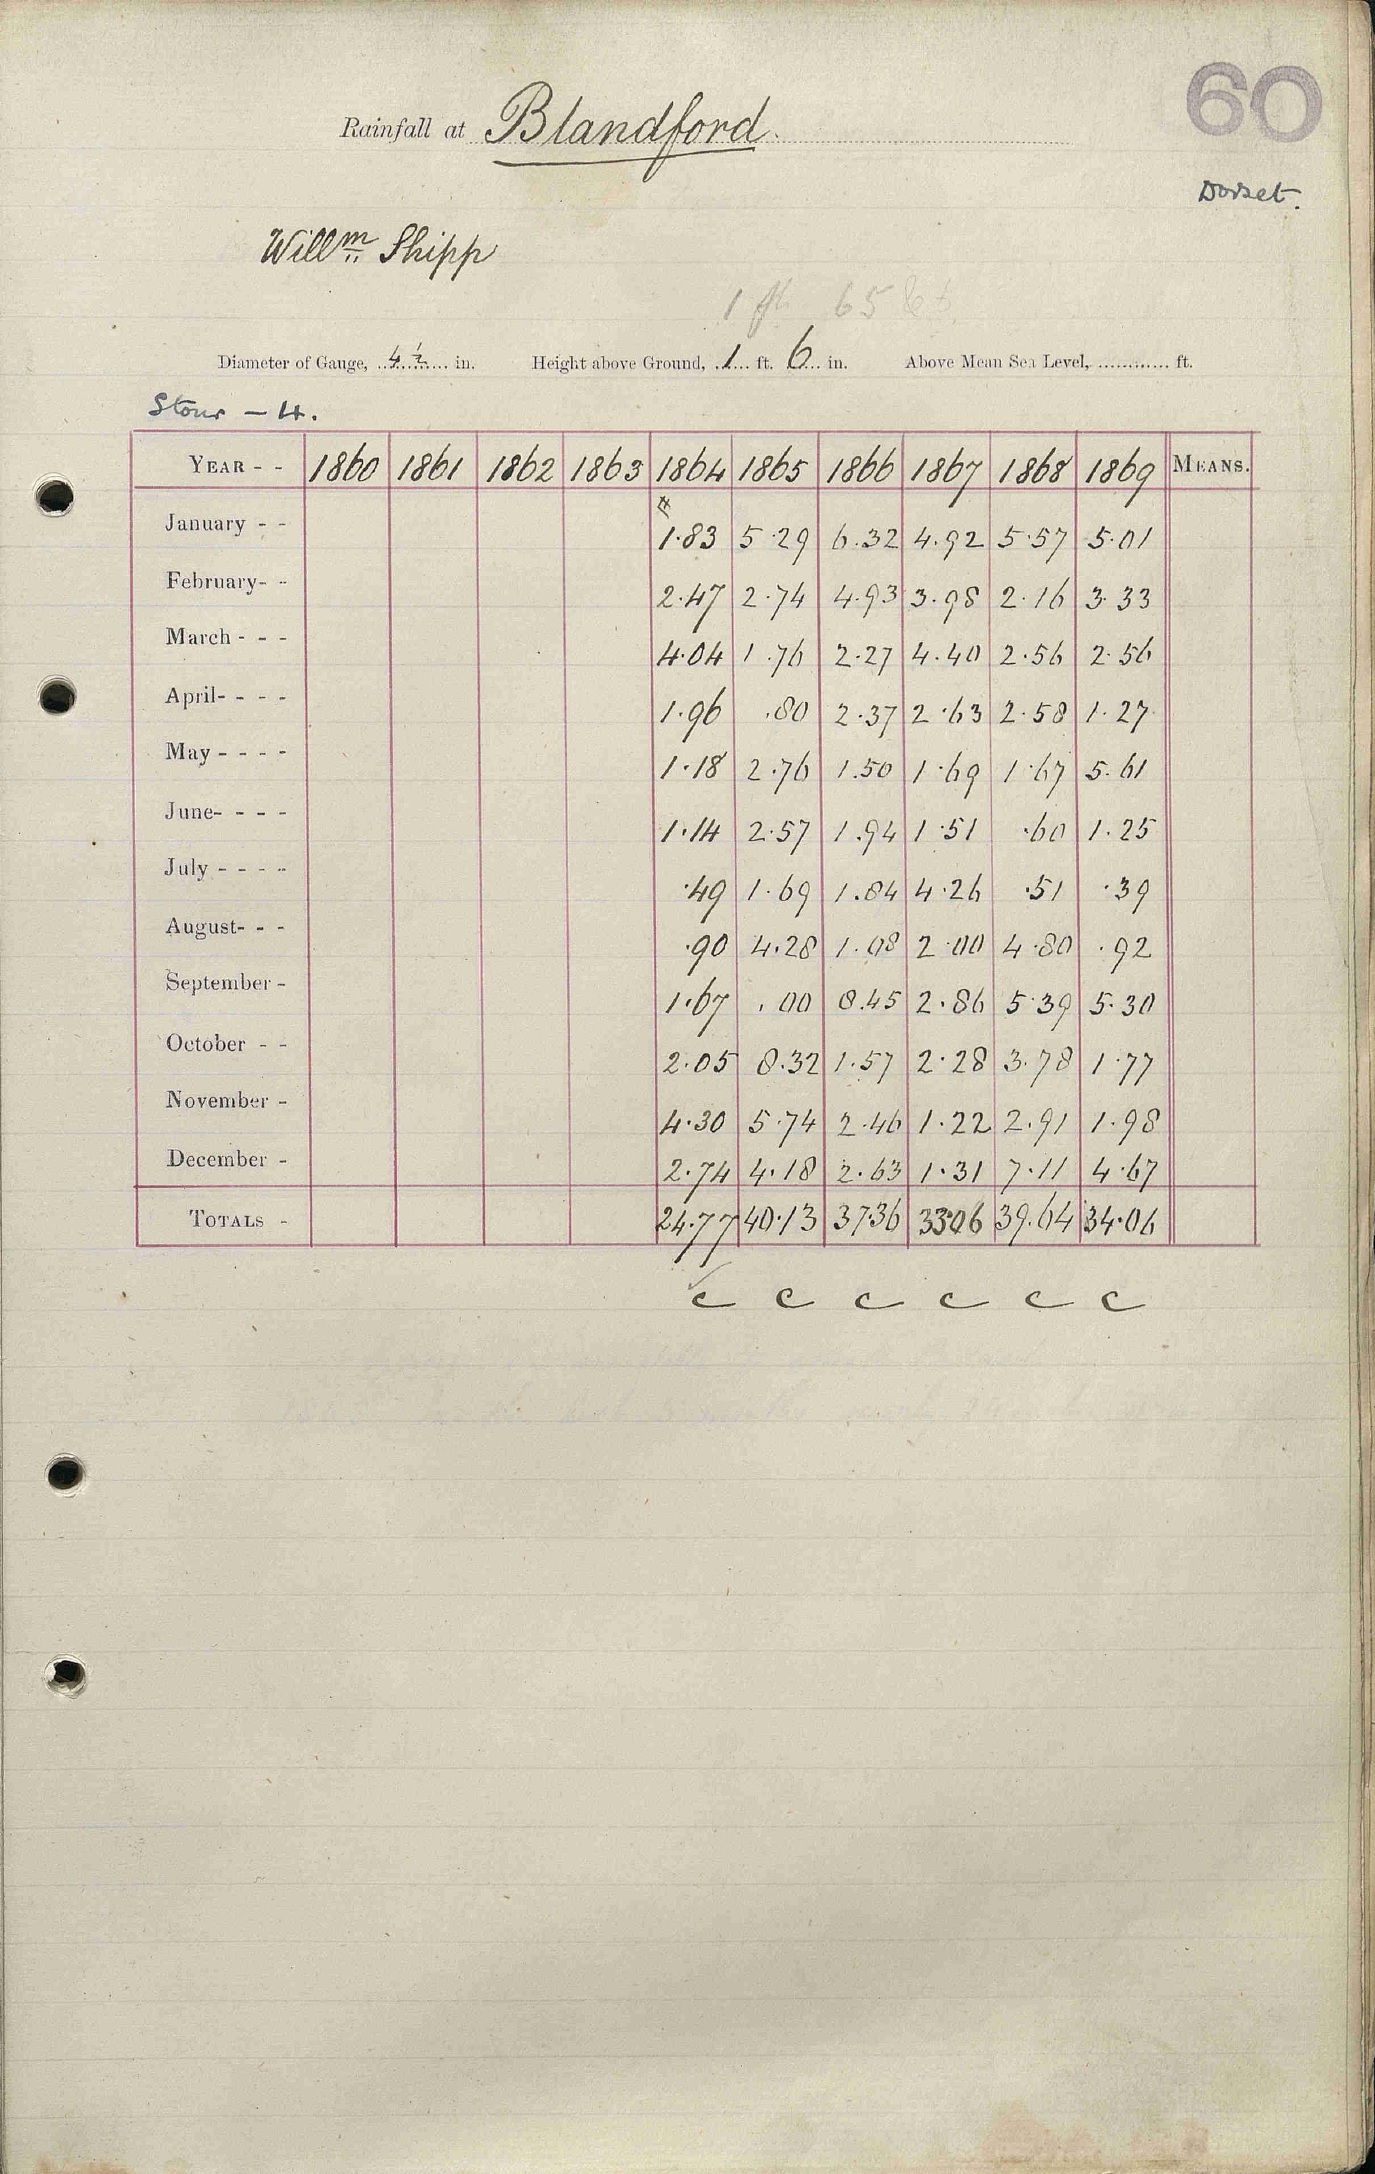 60
Rainfall at Blandford.
Dorset.
Will^m Shipp
1 ft 65
Diameter of Gauge, 4½ in. Height above Ground, 1 ft. 6 in. Above Mean Sea Level, ft.
Stour - 4.
YEAR - - 1860 1861 1862 1863 1864 1865 1866 1867 1868 1869 MEANS.
January - - 1.83 5.29 6.32 4.92 5.57 5.01
February - - 2.47 2.74 4.93 3.98 2.16 3.33
March - - - 4.04 1.76 2.27 4.40 2.56 2.56
April - - - - 1.96 .80 2.37 2.63 2.58 1.27
May - - - - 1.18 2.76 1.50 1.69 1.67 5.61
June - - - - 1.14 2.57 1.94 1.51 .60 1.25
July - - - - .49 1.69 1.84 4.26 .51 .39
August - - - .90 4.28 1.08 2.00 4.80 .92
September - 1.67 .00 8.45 2.86 5.39 5.30
October - - 2.05 8.32 1.57 2.28 3.78 1.77
November - 4.30 5.74 2.46 1.22 2.91 1.98
December - 2.74 4.18 2.63 1.31 7.11 4.67
TOTALS - 24.77 40.13 37.36 33.06 39.64 34.06
c c c c c c